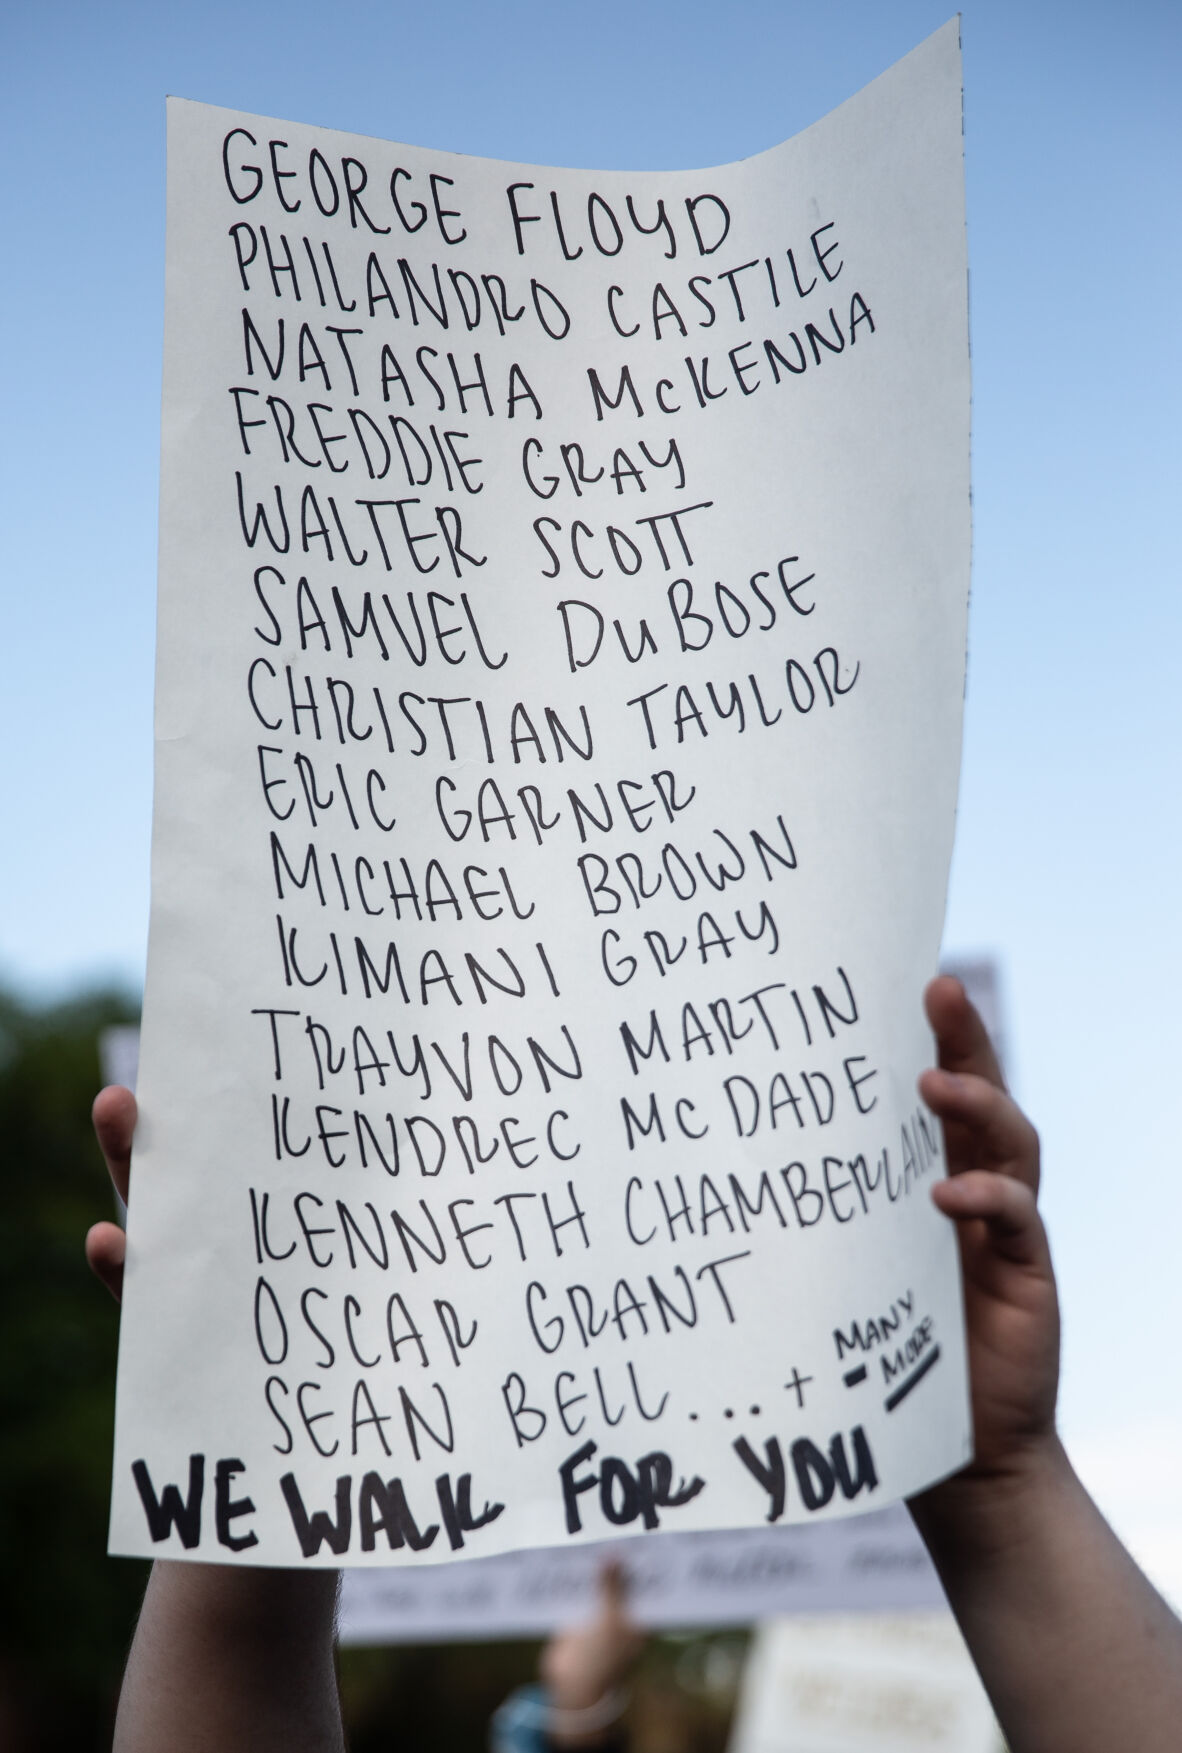 GEORGE FLOYD
PHILANDRO CASTILE
NATASHA McKENNA
FREDDIE GRAY
WALTER SCOTT
SAMUEL DuBOSE
CHRISTIAN TAYLOR
ERIC GARNER
MICHAEL BROWN
KIMANI GRAY
TRAYVON MARTIN
KENDREC McDADE
KENNETH CHAMBERLAIN
OSCAR GRANT
SEAN BELL...+ MANY
MORE
WE WALK FOR YOU